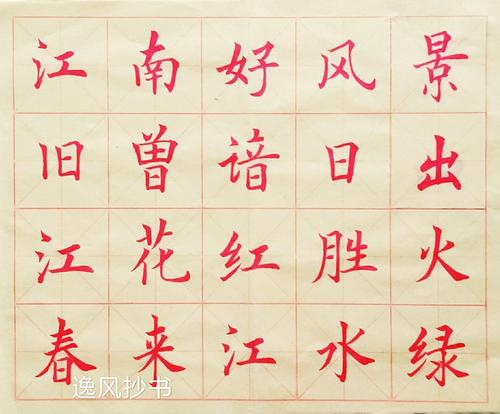 江南好风景
旧曾谙日出
江花红胜火
春来江水绿
逸风抄书